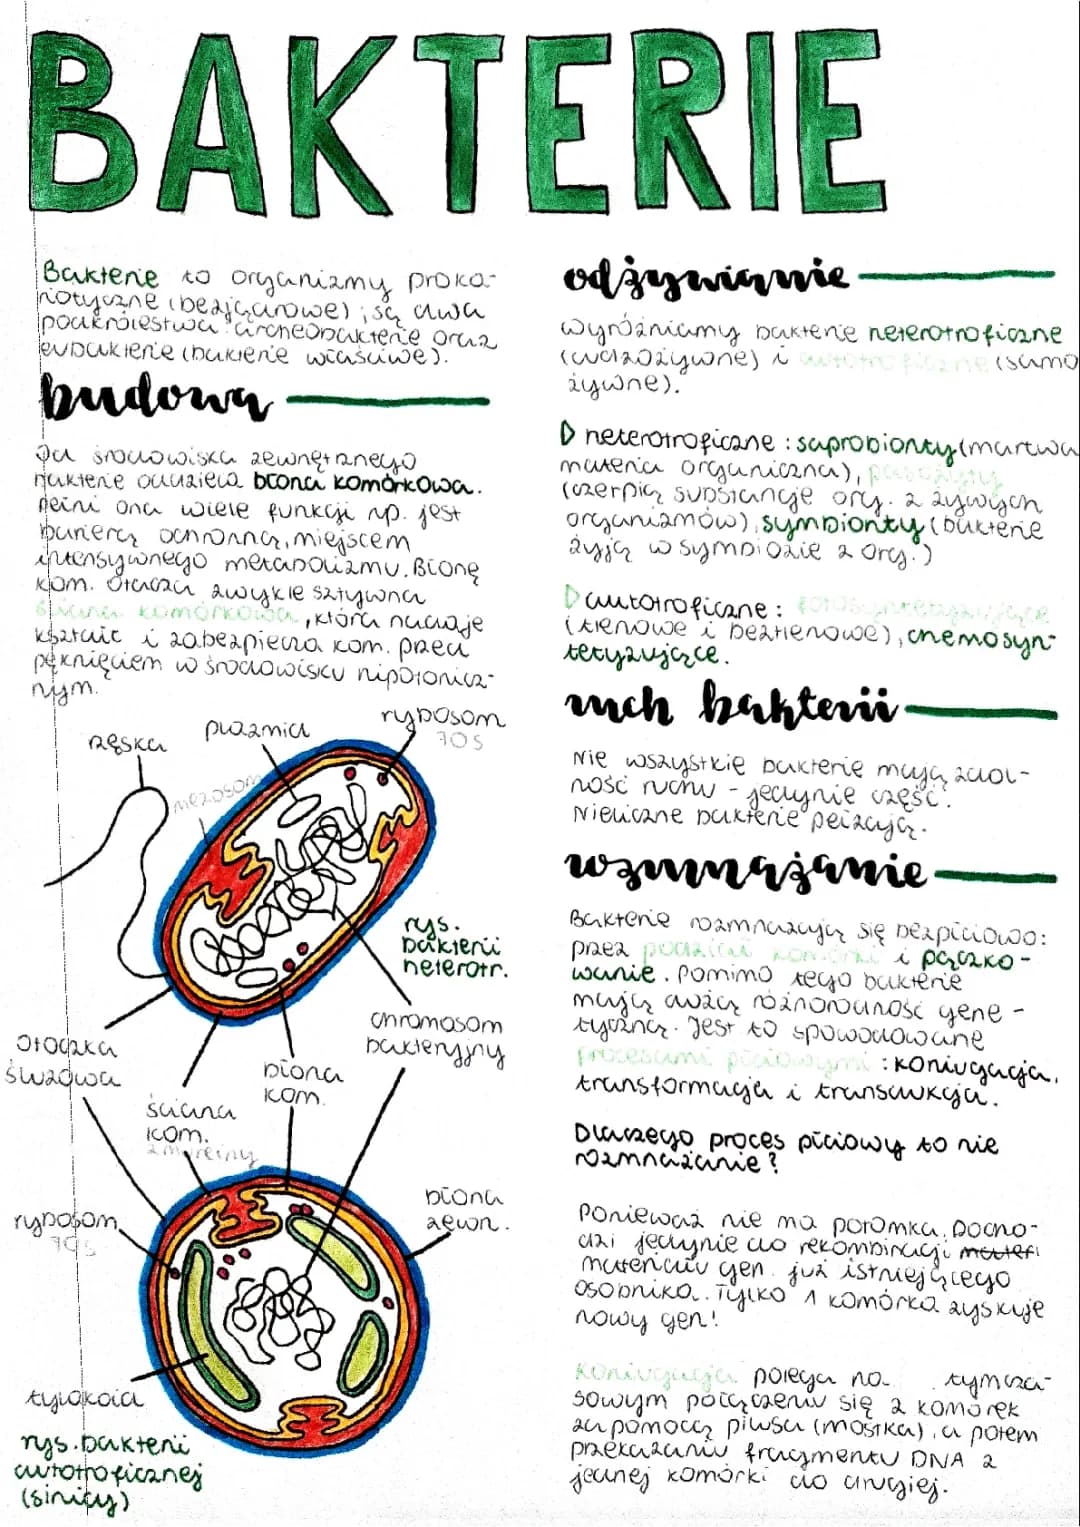 BAKTERIE
Bakterie to organizmy proka-
riotyczne (bezjądrowe); są dwa
podkrólestwa: archeobakterie oraz
eubakterie (bakterie właściwe).
budowa
Od środowiska zewnętrznego
bakterie oddziela błona komórkowa.
Pełni ona wiele funkcji np. jest
barierą ochronną, miejscem
intensywnego metabolizmu. Błonę
kom. otacza zwykle sztywna
ściana komórkowa, która nadaje
kształt i zabezpiecza kom. przed
pęknięciem w środowisku hipotonicz-
nym.
rzęska
plazmid
rybosom
70S
mezosom
rys.
bakterii
heterotr.
otoczka
śluzowa
ściana
kom.
z mureiny
błona
kom.
chromosom
bakteryjny
rybosom
70S
błona
zewn.
tylakoid
rys. bakterii
autotroficznej
(sinicy)
odżywianie
wyróżniamy bakterie heterotroficzne
(cudzożywne) i autotroficzne (samo
żywne).
heterotroficzne: saprobionty (martwa
materia organiczna), pasożyty
(czerpią substancje org. z żywych
organizmów), symbionty (bakterie
żyją w symbiozie z org.)
autotroficzne: fotosyntetyzujące
(tlenowe i beztlenowe), chemosyn-
tetyzujące.
ruch bakterii
Nie wszystkie bakterie mają zdol-
ność ruchu - jedynie część.
Nieliczne bakterie pełzają.
wzmnażanie
Bakterie rozmnażają się bezpłciowo:
przez podział komórki i pączko-
wanie. Pomimo tego bakterie
mają dużą różnorodność gene-
tyczną. Jest to spowodowane
procesami płciowymi: koniugacja,
transformacja i transdukcja.
Dlaczego proces płciowy to nie
rozmnażanie?
Ponieważ nie ma potomka. Docho-
dzi jedynie do rekombinacji materi
materiału gen. już istniejącego
osobnika. Tylko 1 komórka zyskuje
nowy gen!
Koniugacja polega na tymcza-
sowym połączeniu się 2 komórek
za pomocą pilusa (mostka), a potem
przekazaniu fragmentu DNA z
jednej komórki do drugiej.